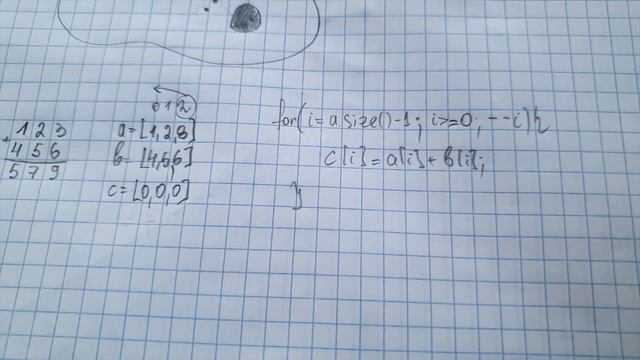 123
+456
579
0 1 2
a=[1,2,3]
b=[4,5,6]
c=[0,0,0]
for(i=a.size()-1; i>=0; --i){
c[i]=a[i]+b[i];
}